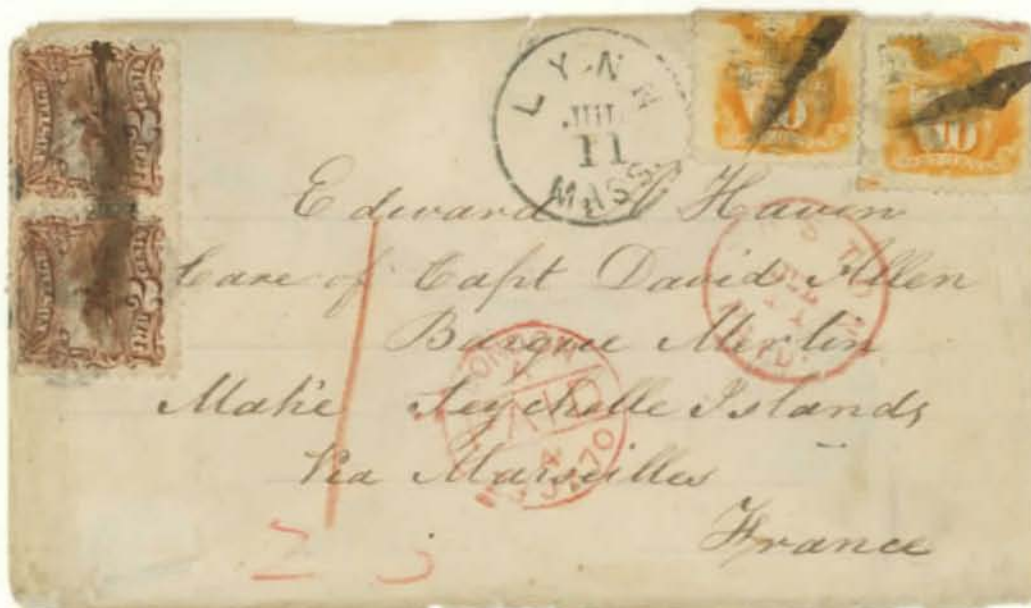 LYNN
JUL
11
MASS
10
10
Edward A Haven
Care of Capt David Allen
Barque Merlin
Mahé Seychelle Islands
Via Marseilles
France
LONDON
PAID
70